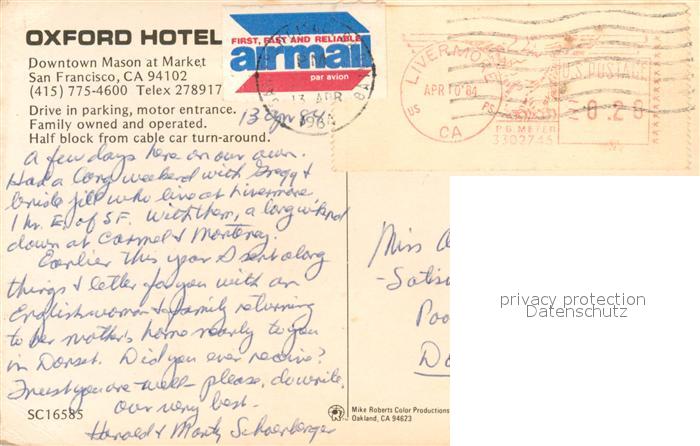 OXFORD HOTEL
Downtown Mason at Market
San Francisco, CA 94102
(415) 775-4600 Telex 278917
Drive in parking, motor entrance.
Family owned and operated.
Half block from cable car turn-around.
FIRST, FAST AND RELIABLE
airmail
par avion
PM
13 APR
LIVERMORE
APR 10 '84
US PS
CA
U.S. POSTAGE
0.28
P.B. METER
3302745
13 Apr 84
A few days here on our own.
Had a long weekend with Gregg &
bride Jill who live at Livermore
1 hr. E. of S.F. With them, a long w'kend
down at Carmel & Monterey.
Earlier this year I sent along
things & letter for you with an
Englishwoman & family returning
to her mother's home nearly to you
in Dorset. Did you ever receive?
Trust you are well — please, do write.
Our very best —
Harold & Marty
Miss
Poo
Do
privacy protection
Datenschutz
SC16585
Mike Roberts Color Productions
Oakland, CA 94623